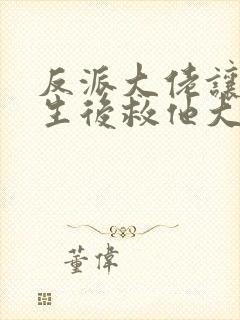 反派大佬讓
生後救他大
董偉